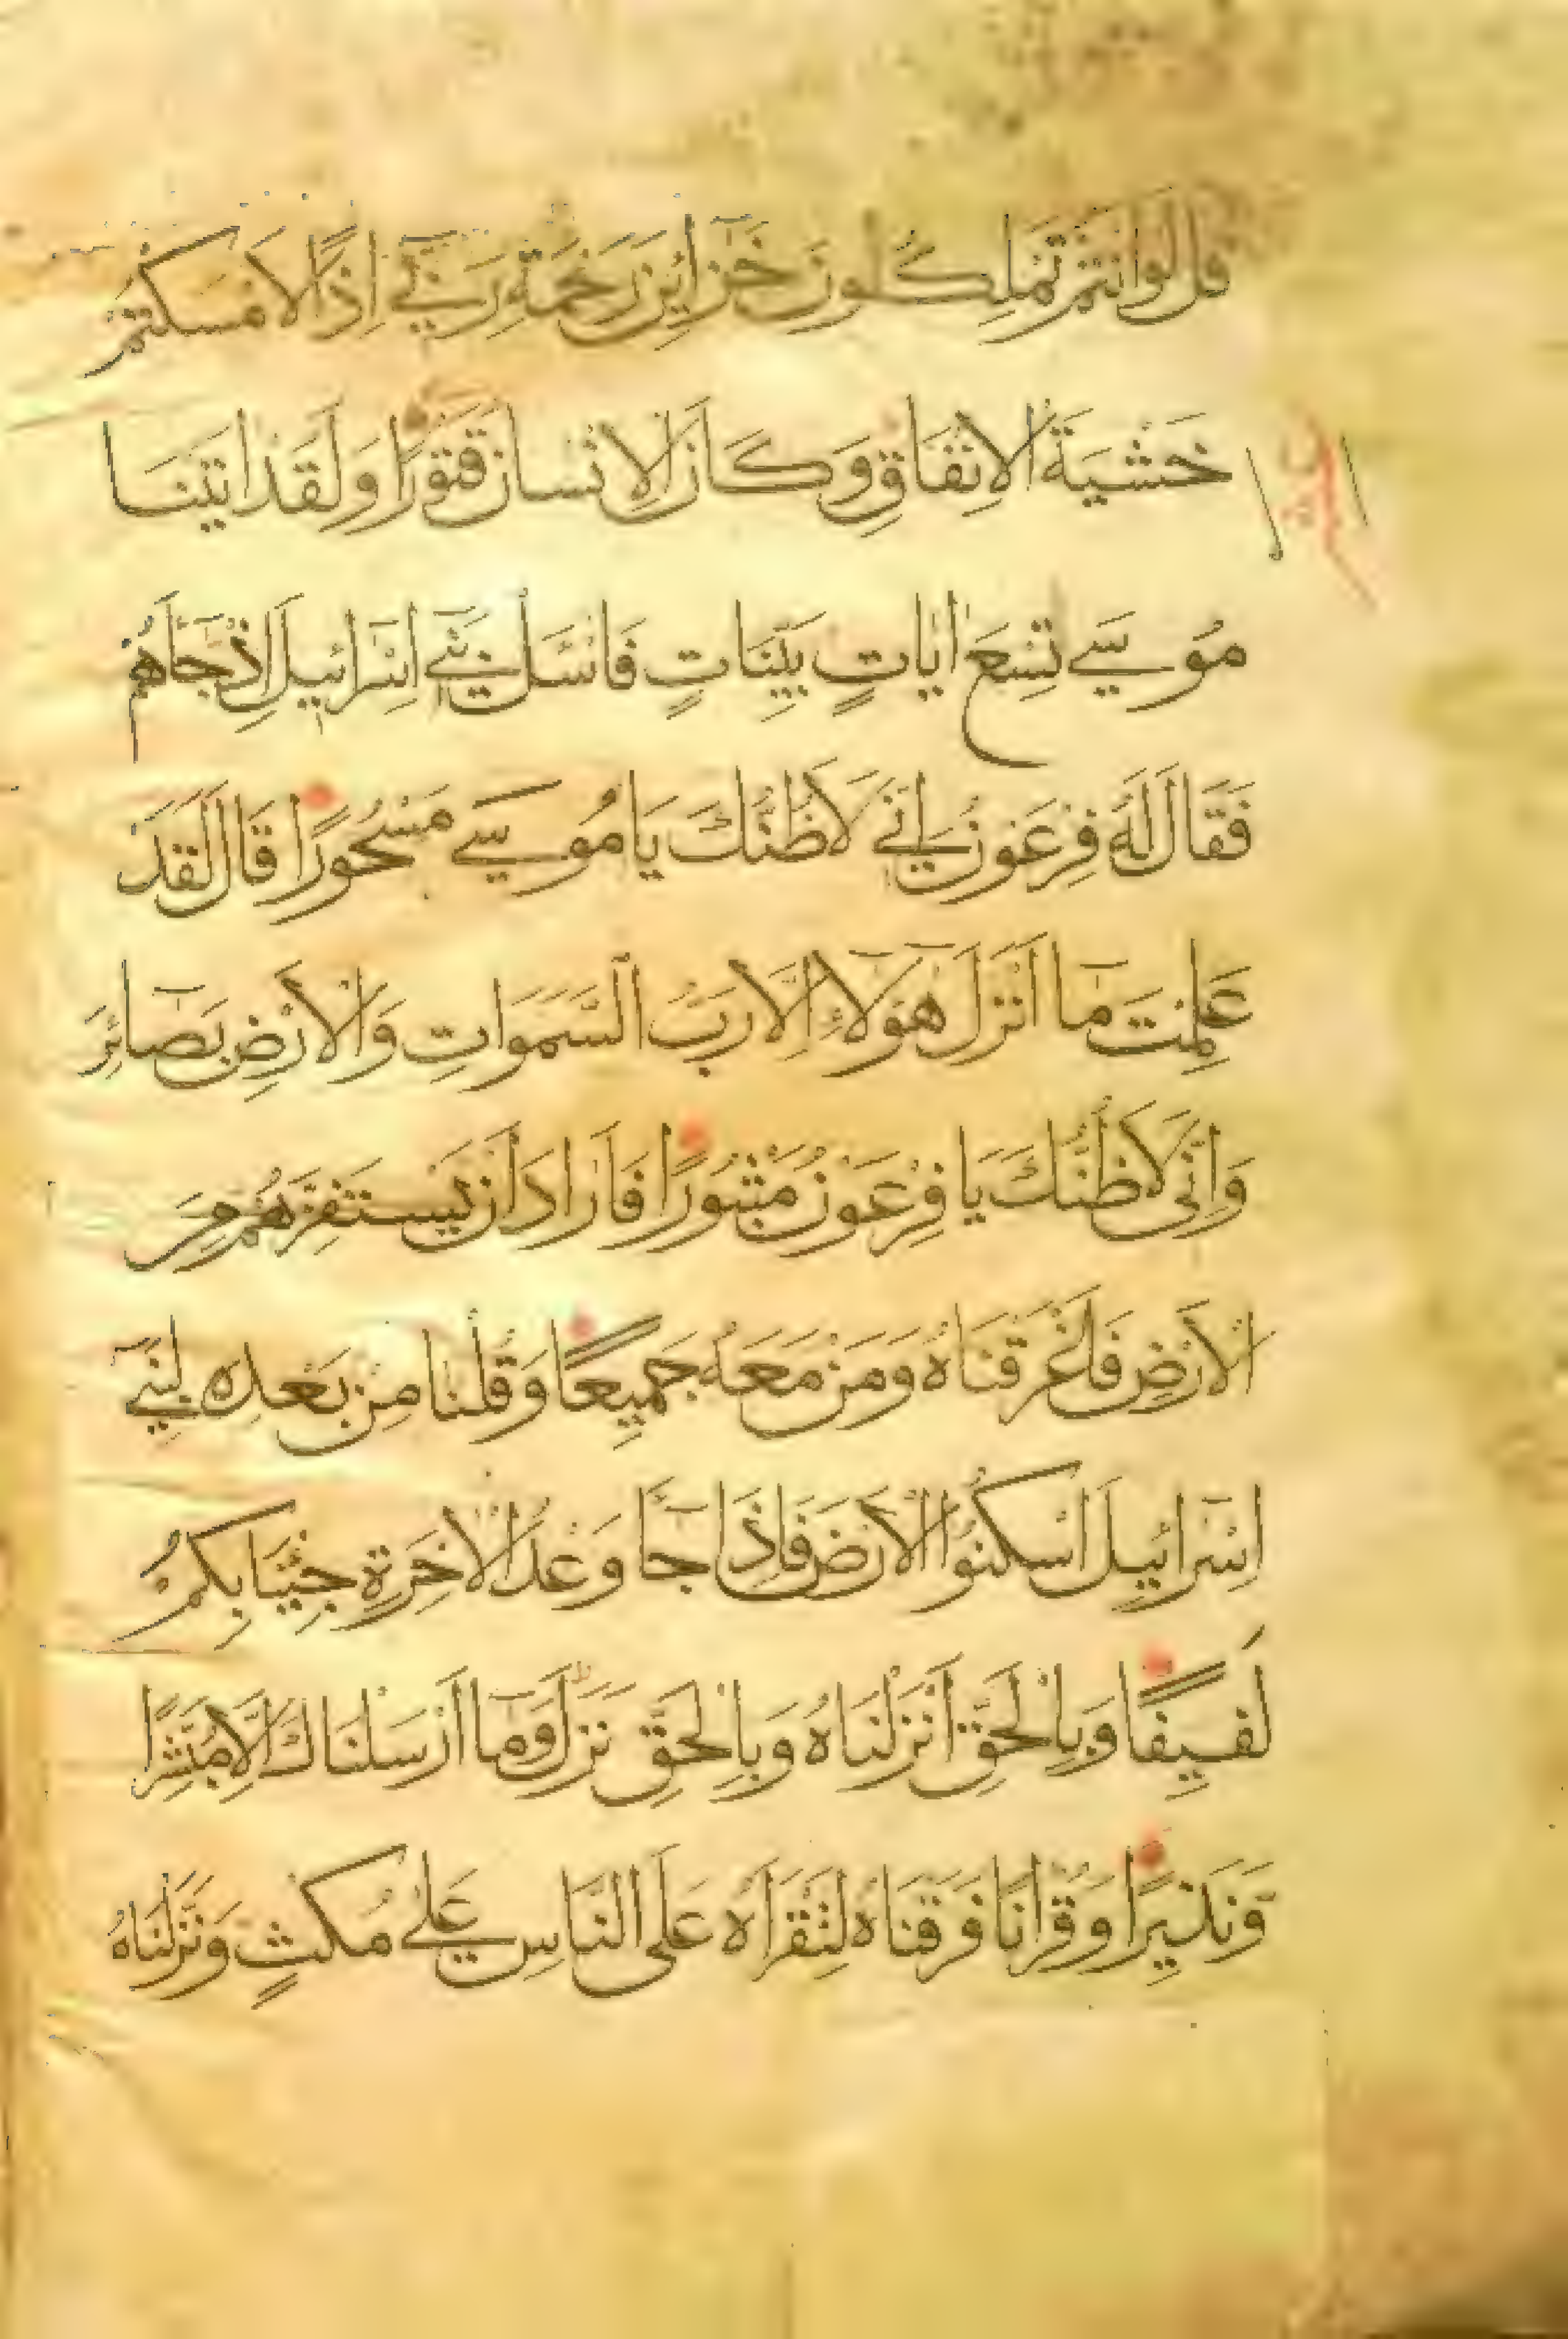 قُل لَوْ اَنْتُمْ تَمْلِكُونَ خَزَآئِنَ رَحْمَةِ رَبِّيٓ اِذًا لَاَمْسَكْتُمْ
خَشْيَةَ الْاِنْفَاقِ وَكَانَ الْاِنْسَانُ قَتُورًا وَلَقَدْ اٰتَيْنَا
مُوسٰى تِسْعَ اٰيَاتٍ بَيِّنَاتٍ فَاسْئَلْ بَنِيٓ اِسْرَآئِيلَ اِذْ جَآءَهُمْ
فَقَالَ لَهُ فِرْعَوْنُ اِنّٖي لَاَظُنُّكَ يَا مُوسٰى مَسْحُورًا قَالَ لَقَدْ
عَلِمْتَ مَآ اَنْزَلَ هٰٓؤُلَآءِ اِلَّا رَبُّ السَّمٰوَاتِ وَالْاَرْضِ بَصَآئِرَ
وَاِنّٖى لَاَظُنُّكَ يَا فِرْعَوْنُ مَثْبُورًا فَاَرَادَ اَنْ يَسْتَفِزَّهُمْ مِنَ
الْاَرْضِ فَاَغْرَقْنَاهُ وَمَنْ مَعَهُ جَمِيعًا وَقُلْنَا مِنْ بَعْدِهٖ لِبَنِيٓ
اِسْرَآئِيلَ اسْكُنُوا الْاَرْضَ فَاِذَا جَآءَ وَعْدُ الْاٰخِرَةِ جِئْنَا بِكُمْ
لَفِيفًا وَبِالْحَقِّ اَنْزَلْنَاهُ وَبِالْحَقِّ نَزَلَ وَمَآ اَرْسَلْنَاكَ اِلَّا مُبَشِّرًا
وَنَذِيرًا وَقُرْاٰنًا فَرَقْنَاهُ لِتَقْرَاَهُ عَلَى النَّاسِ عَلٰى مُكْثٍ وَنَزَّلْنَاهُ